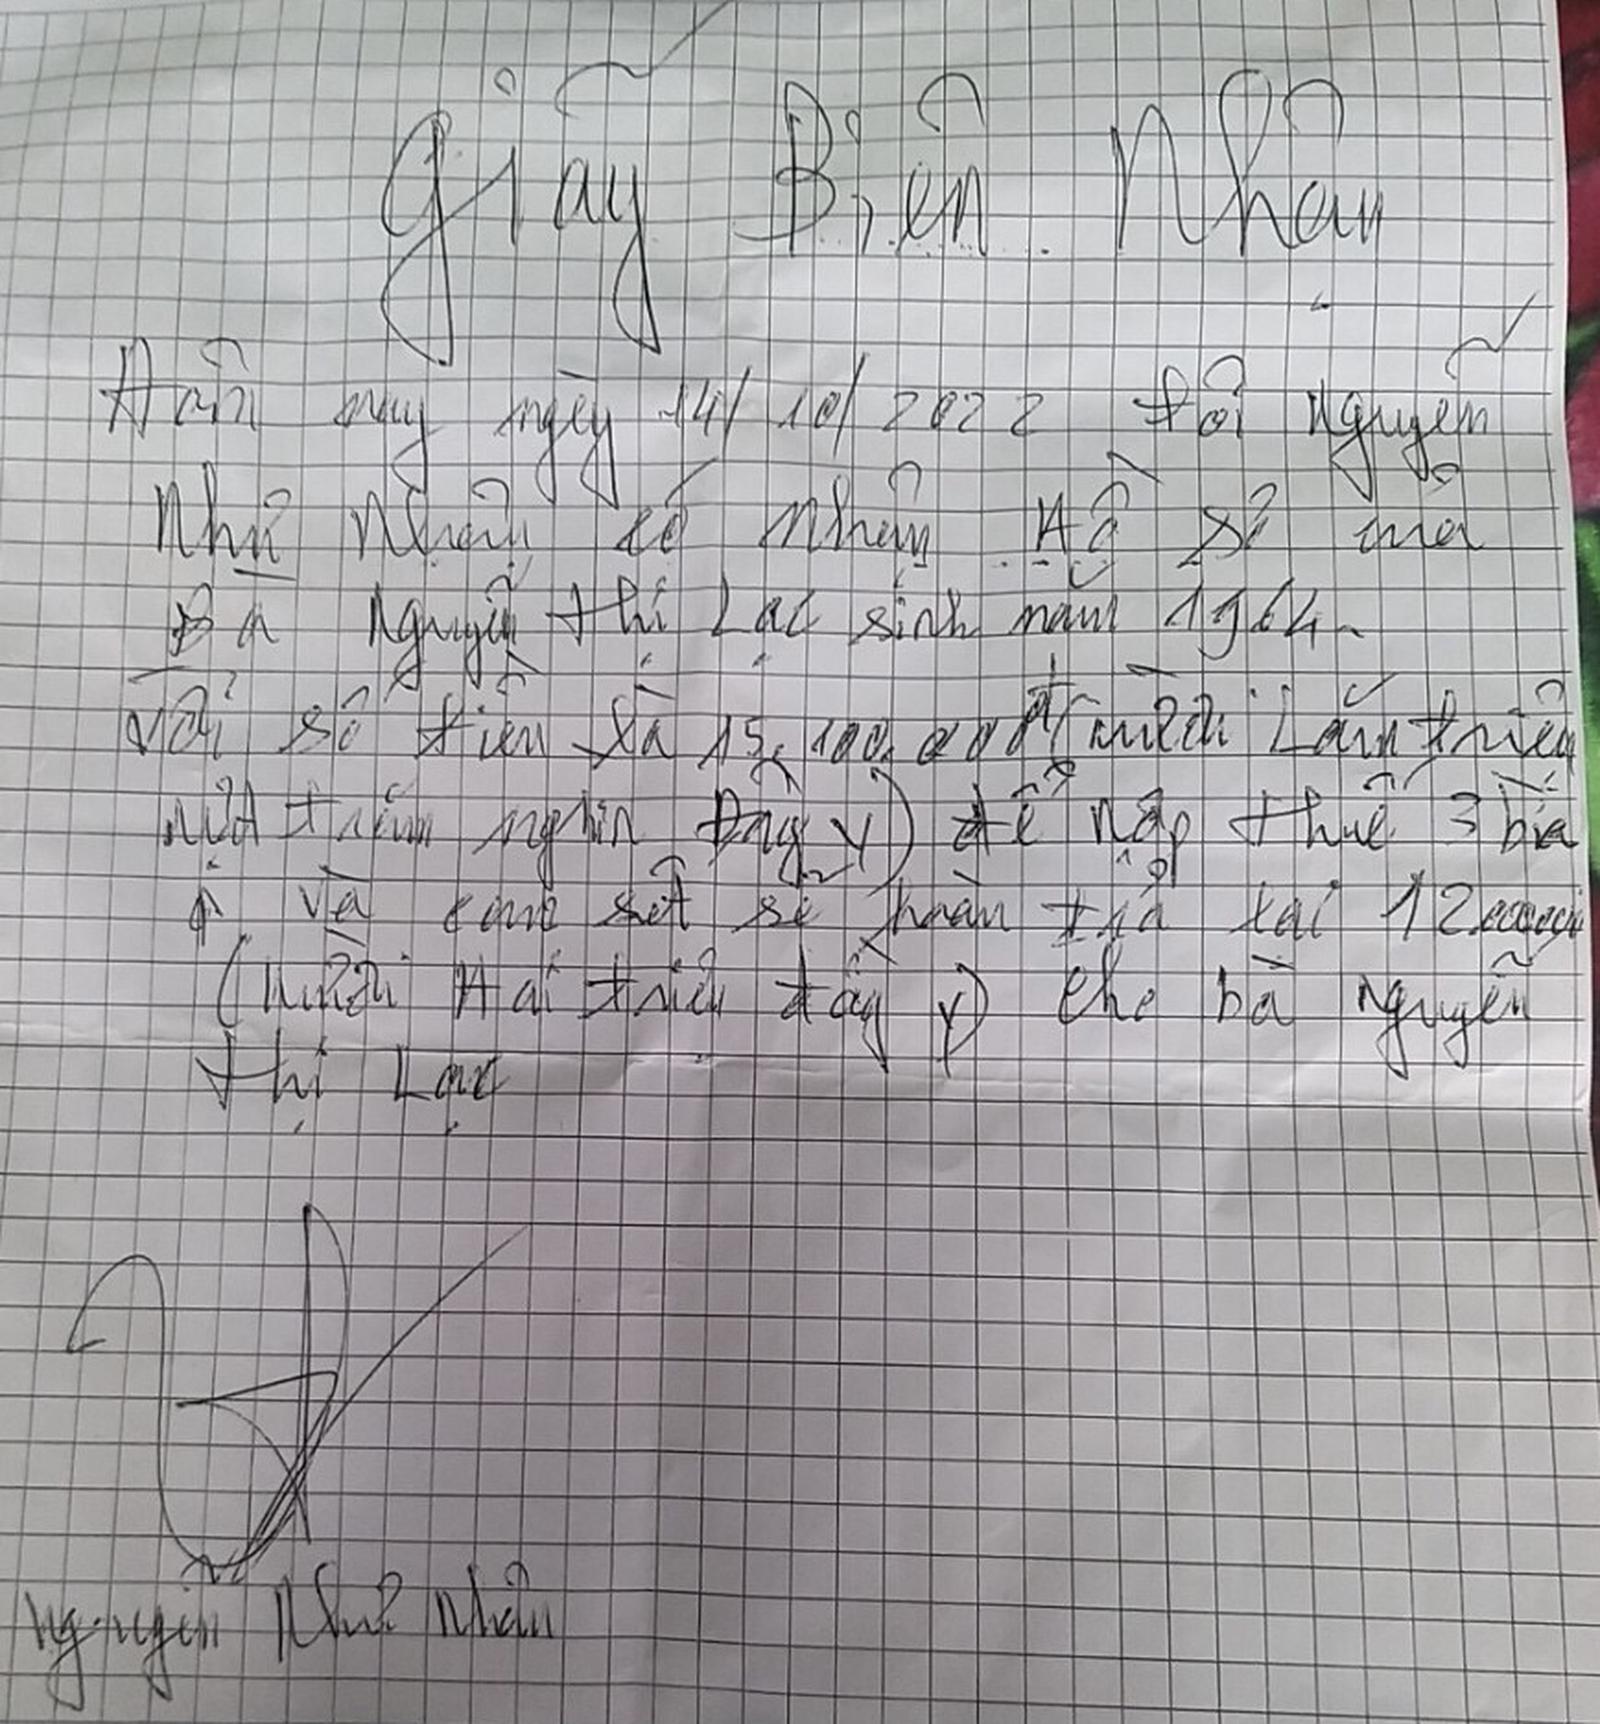 Giấy Biên Nhận
Hôm nay ngày 14/10/2022 tôi Nguyễn
Như Nhân có nhận Hồ sơ của
Bà Nguyễn Thị Lạc sinh năm 1964
Với số tiền là 15.100.000đ (mười Lăm triệu
một trăm nghìn Đồng y) để nộp thuế 3 bìa
và cam kết sẽ hoàn trả lại 12000000
(Mười Hai triệu đồng y) cho bà Nguyễn
thị Lạc
Nguyễn Như Nhân